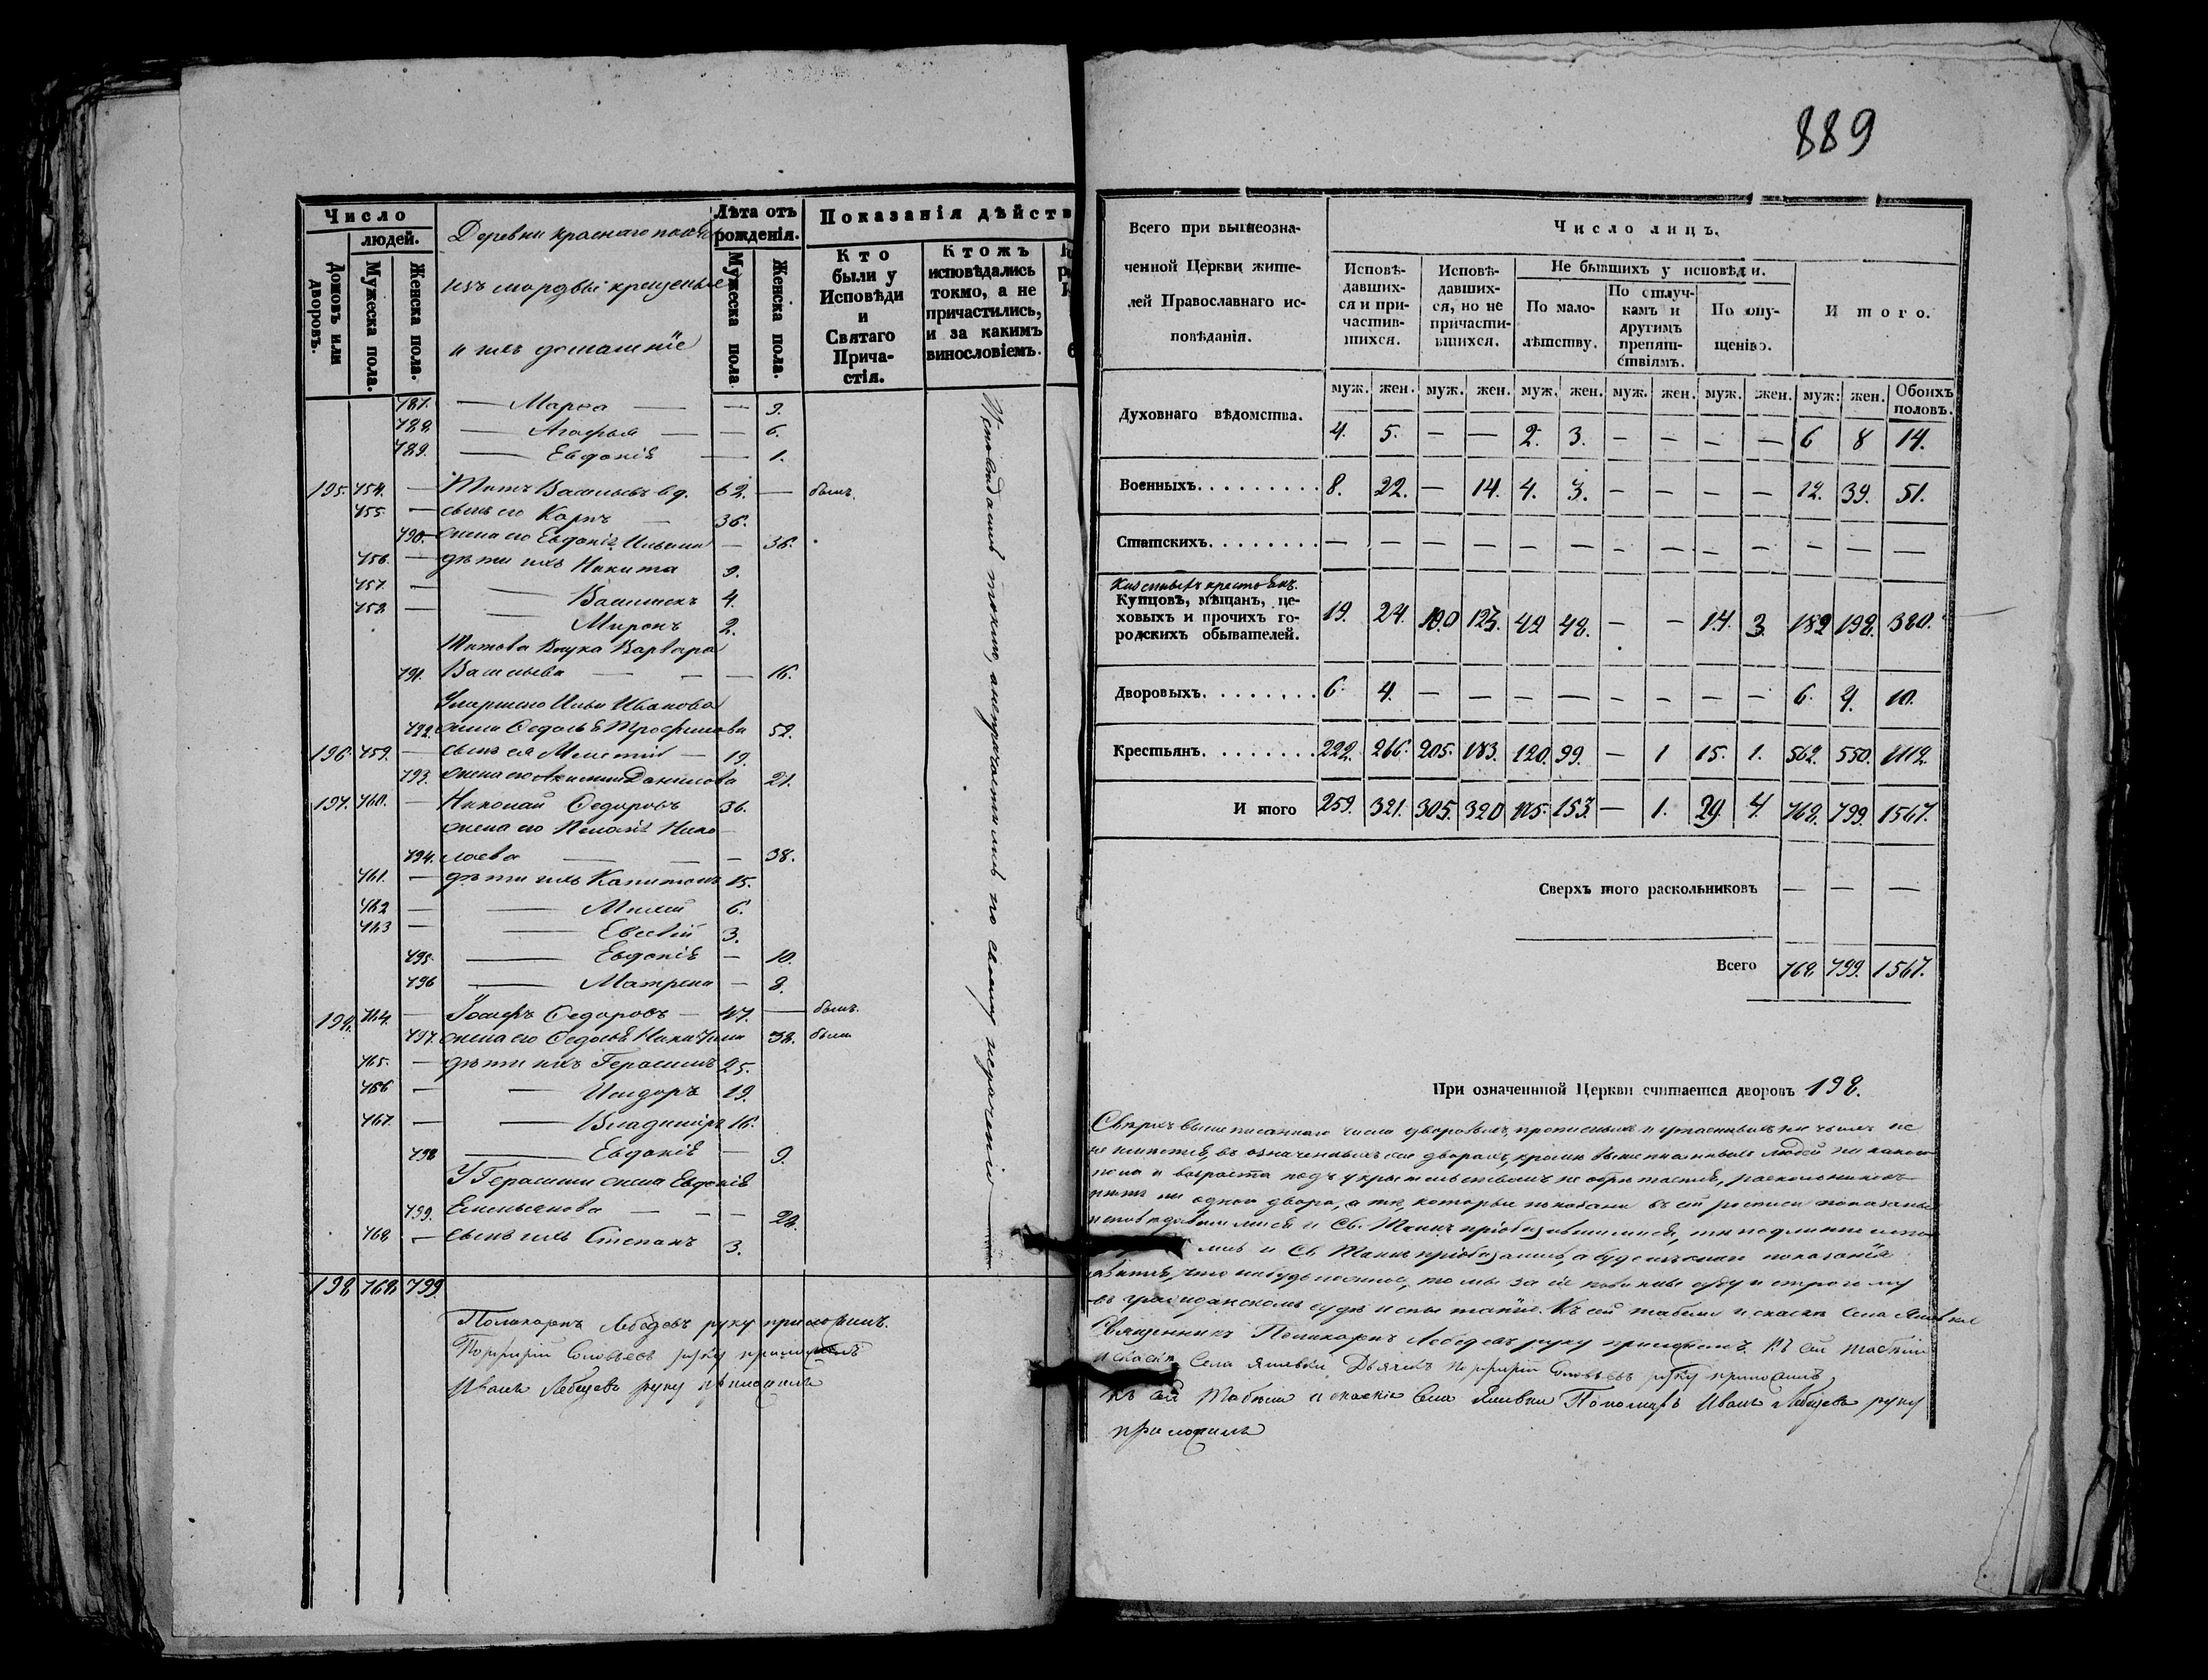 889
Число
людей.
Домовъ или дворовъ.
Мужеска пола.
Женска пола.
Деревни Краснаго
изъ мордвы крещеные
и ихъ домашніе
Лѣта отъ
рожденія.
Мужеска пола
Женска пола.
Показанія дѣйств
Кто
были у
Исповѣди
и
Святаго
Прича-
стія.
Ктожъ
исповѣдались
токмо, а не
причастились,
и за какимъ
винословіемъ.
787. — Марѳа — — 9.
788. — Агафья — — 6.
789. — Евдокія — 1.
195. 754. — Титъ Васильевъ вд. 62. — былъ.
755 — сынъ его Карпъ — 36.
790. жена его Евдокія Ильина — 36.
756. — дѣти ихъ Никита 9.
757. — — 4.
758. — — Миронъ 2.
Титова Внука Варвара
791. Васильева — — — 16.
Умершаго Ильи Иванова
792. жена Ѳедосья Трофимова 52.
196. 759. — сынъ ея — 19.
793. жена его Данилова 21.
197. 760. — Николай Ѳедоровъ 36.
жена его Пелагія Нико-
794. лаева — — — 38.
761. — дѣти ихъ Капитонъ 15.
762 — — 6.
763 — — Евсевій 3.
795. — Евдокія — 10.
796 — Матрена — 8.
198. 764. — Іосифъ Ѳедоровъ — 47. — былъ.
797. жена его Ѳедосья 38. была
765. — дѣти ихъ Герасимъ 25.
766 — — Исидоръ 19.
767. — — Владиміръ 16.
798 — Евдокія — 9.
У Герасима жена Евдокія
799. Емельянова — — — 28.
768 — сынъ ихъ Степанъ 3.
198 768 799.
Исповѣдались токмо, а не причастились по своему нерачению
Поликарпъ Лебедевъ руку приложилъ.
Порфирій Соловьевъ руку приложилъ
Иванъ Лебедевъ руку приложилъ
Всего при вышеозна-
ченной Церкви жите-
лей Православнаго ис-
повѣданія.
Число лицъ.
Исповѣ-
давших-
ся и при-
частив-
шихся.
Исповѣ-
давших-
ся, но не
причасти-
вшихся.
Не бывшихъ у исповѣди.
По мало-
лѣтству.
По отлуч-
камъ и
другимъ
препят-
ствіямъ.
По опу-
щенію.
Итого.
муж. жен. муж. жен. муж. жен. муж. жен. муж. жен. муж: жен. Обоихъ половъ.
Духовнаго вѣдомства. 4. 5. — — 2. 3. — — — — 6 8 14.
Военныхъ. 8. 22. — 14. 4. 3. — — — — 12. 39. 51.
Статскихъ. — — — — — — — — — — — — —
Казенныхъ крестьянъ.
Купцовъ, мѣщанъ, це-
ховыхъ и прочихъ го-
родскихъ обывателей. 19. 24. 100 123. 49 48. — — 14. 3. 182 198. 380.
Дворовыхъ. 6. 4. — — — — — — — — 6. 4. 10.
Крестьянъ. 222. 266. 205. 183. 120. 99. — 1 15. 1. 562. 550. 1112.
Итого 259. 321. 305. 320 175. 153. — 1. 29. 4. 768. 799. 1567.
Сверхъ того раскольниковъ — — —
Всего 768. 799. 1567.
При означенной Церкви считается дворовъ 198.
Сверхъ вышеписаннаго числа дворовыхъ, прописныхъ и утаенныхъ ни чьихъ не
въ означенныхъ дворахъ, кромѣ вышеписанныхъ людей ни какого
пола и возраста подъ укрывательствомъ не обрѣтается, раскольниковъ
нѣтъ ни одного двора, а тѣ, которые показаны въ сей росписи показаны
исповѣдавшимися и Св. Таинъ пріобщавшимися, тѣ подлинно испо
лись и Св. Таинъ пріобщались, а буде въ семъ показаніи
явится, что нибудь ложное, то мы за сіе повинны суду и строгому
въ гражданскомъ судѣ истязанію. Къ сей табели и сказкѣ Села
Священникъ Поликарпъ Лебедевъ руку приложилъ. Къ сей табели
и сказкѣ Села Дьячекъ Порфирій Соловьевъ руку приложилъ
Къ сей Табели и сказкѣ Села Пономарь Иванъ Лебедевъ руку
приложилъ